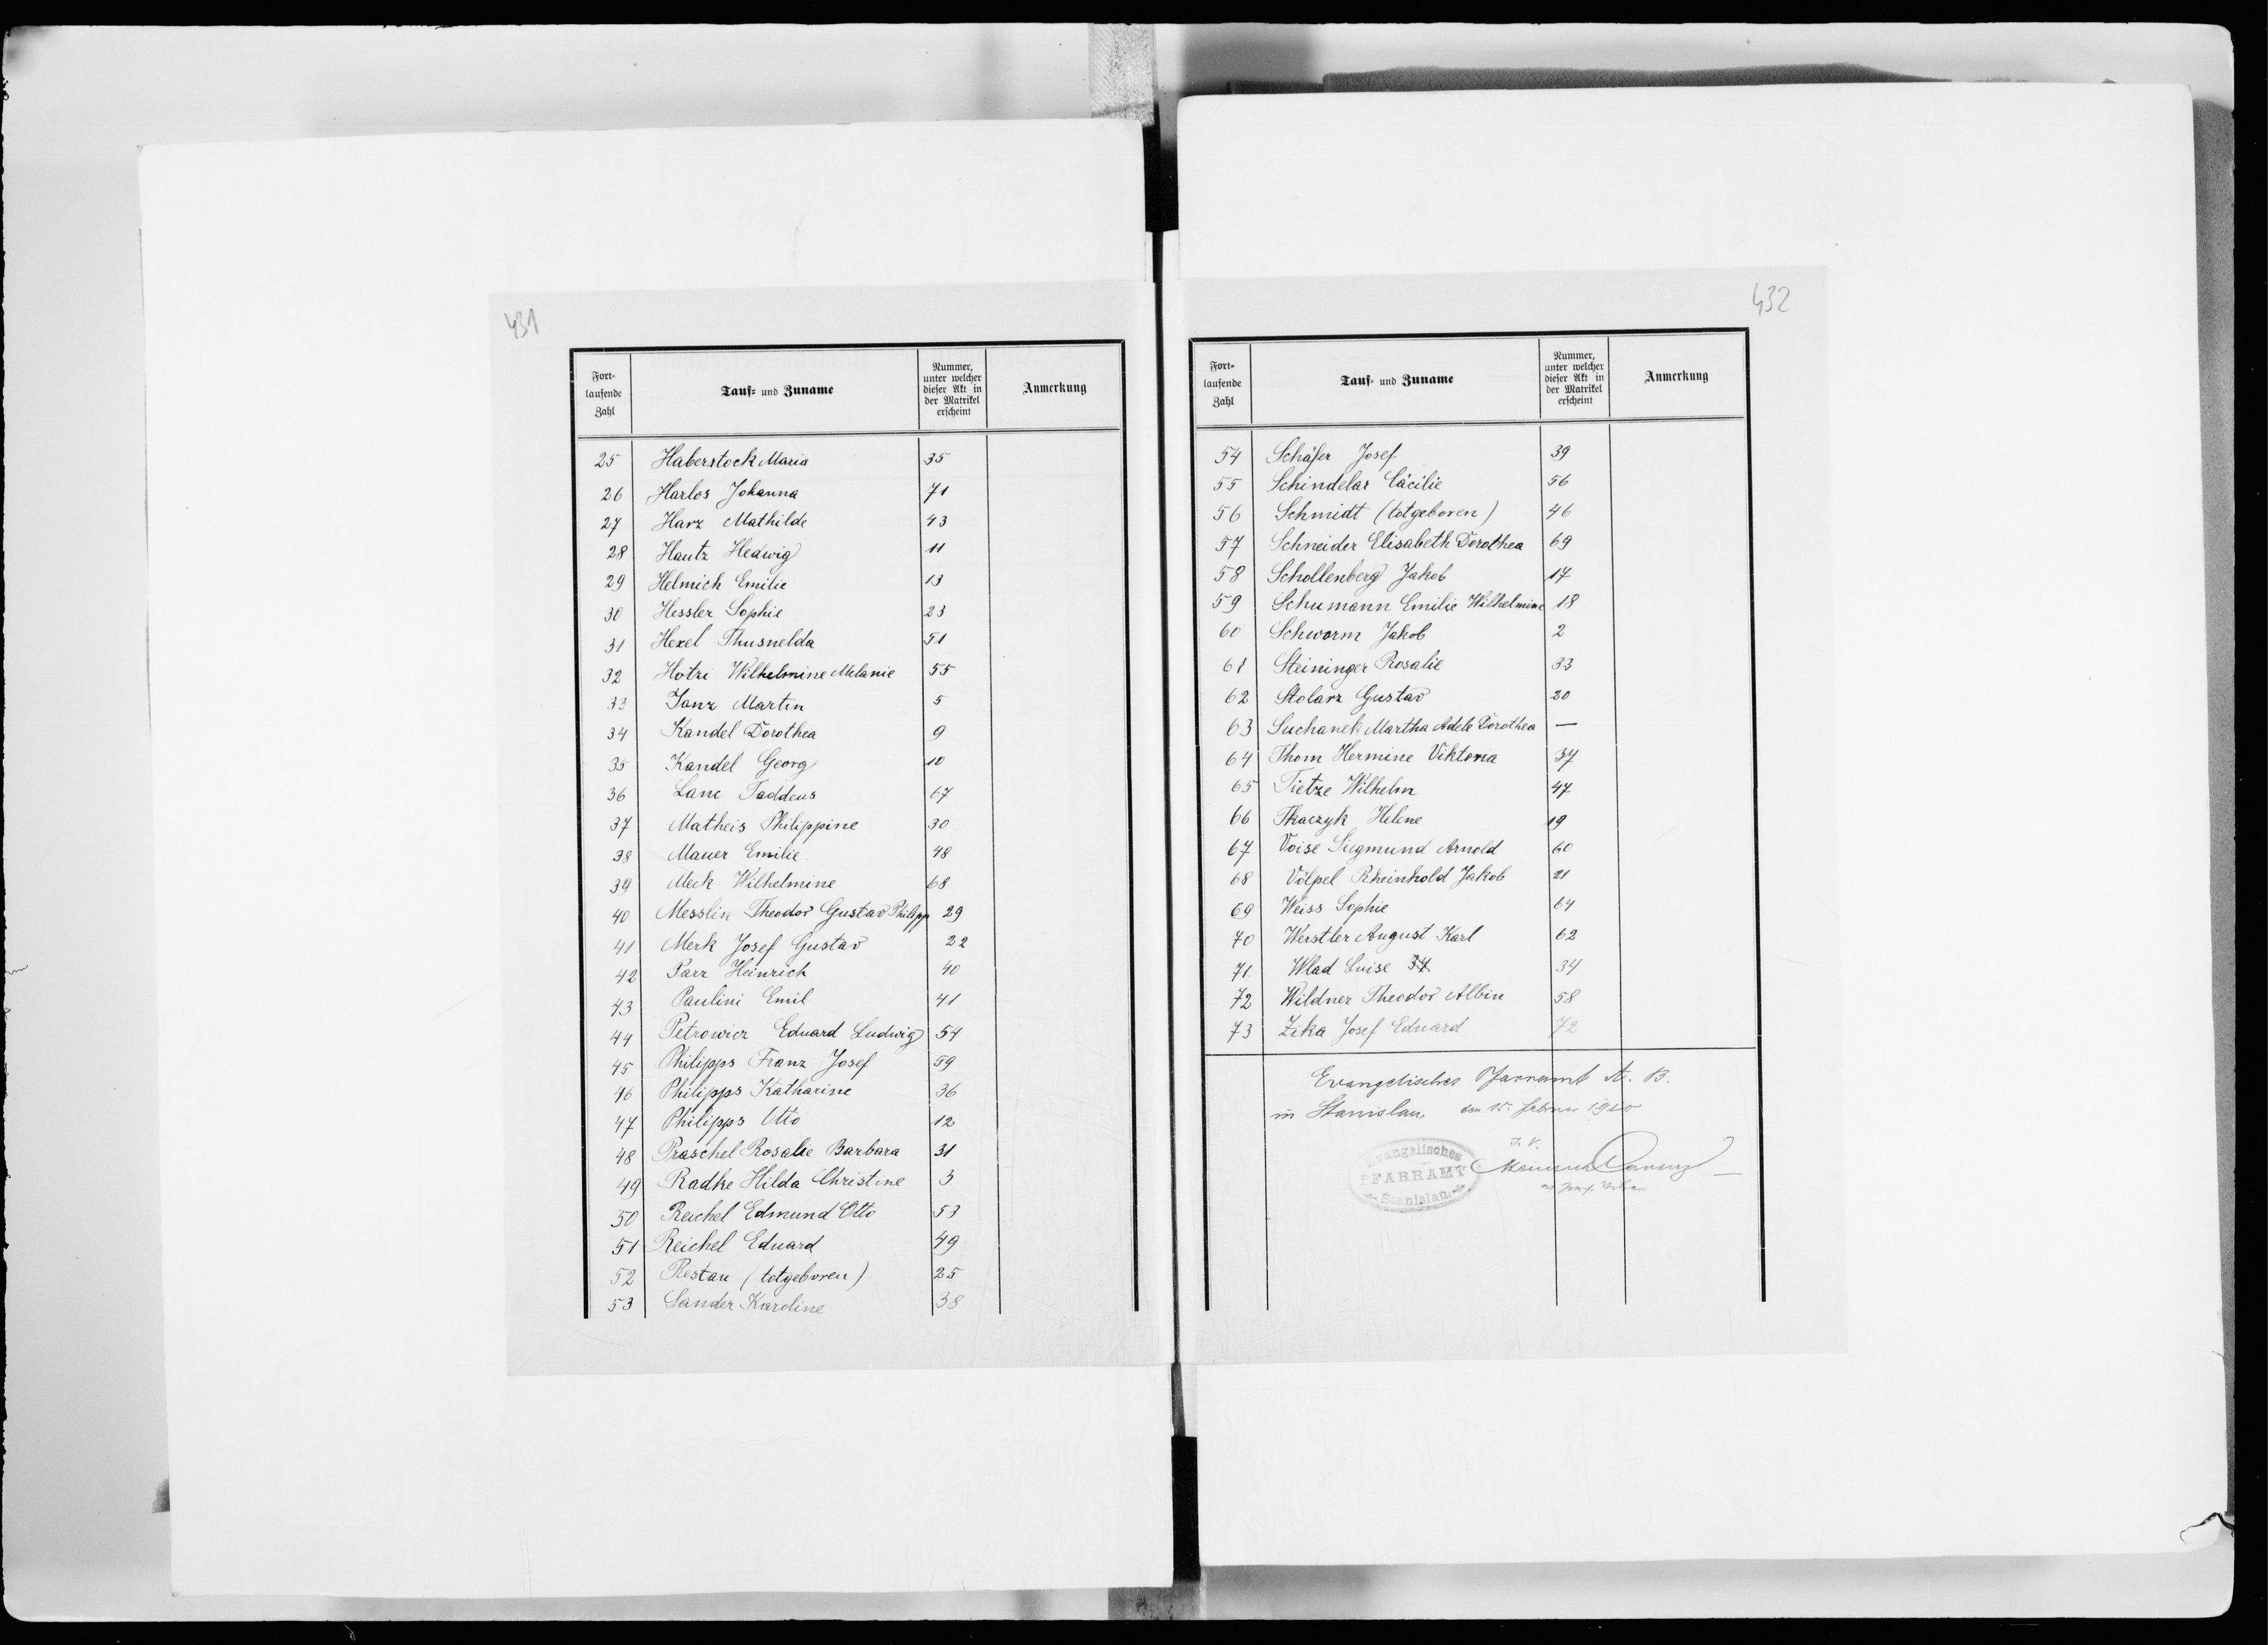 431
Fort-
laufende
Zahl
Tauf- und Zuname
Nummer,
unter welcher
dieser Akt in
der Matrikel
erscheint
Anmerkung
25 Haberstock Maria 35
26 Harlos Johanna 71
27 Harz Mathilde 43
28 Hautz Hedwig 11
29 Helmich Emilie 13
30 Hessler Sophie 23
31 Hexel Thusnelda 51
32 Hotzi Wilhelmine Melanie 55
33 Janz Martin 5
34 Kandel Dorothea 9
35 Kandel Georg 10
36 Lanc Taddeus 67
37 Matheis Philippine 30
38 Mauer Emilie 48
39 Meck Wilhelmine 68
40 Messlin Theodor Gustav Philipp 29
41 Merk Josef Gustav 22
42 Parr Heinrich 40
43 Paulini Emil 41
44 Petrowicz Eduard Ludwig 54
45 Philipps Franz Josef 59
46 Philipps Katharine 36
47 Philipps Otto 12
48 Praschel Rosalie Barbara 31
49 Radke Hilda Christine 3
50 Reichel Edmund Otto 53
51 Reichel Eduard 49
52 Restau (totgeboren) 25
53 Sander Karoline 38
432
Fort-
laufende
Zahl
Tauf- und Zuname
Nummer,
unter welcher
dieser Akt in
der Matrikel
erscheint
Anmerkung
54 Schäfer Josef 39
55 Schindelar Cäcilie 56
56 Schmidt (totgeboren) 46
57 Schneider Elisabeth Dorothea 69
58 Schollenberg Jakob 17
59 Schumann Emilie Wilhelmine 18
60 Schworm Jakob 2
61 Steininger Rosalie 33
62 Stolarz Gustav 20
63 Suchanek Martha Adele Dorothea —
64 Thom Hermine Viktoria 37
65 Tietze Wilhelm 47
66 Tkaczyk Helene 19
67 Voise Siegmund Arnold 60
68 Völpel Rheinhold Jakob 21
69 Weiss Sophie 64
70 Werstler August Karl 62
71. Wlad Luise 34 34
72 Wildner Theodor Albin 58
73 Zika Josef Eduard 72
Evangelisches Pfarramt A. B.
in Stanislau, den 15. Februar
J. V.
Evangelisches
PFARRAMT
Stanislau